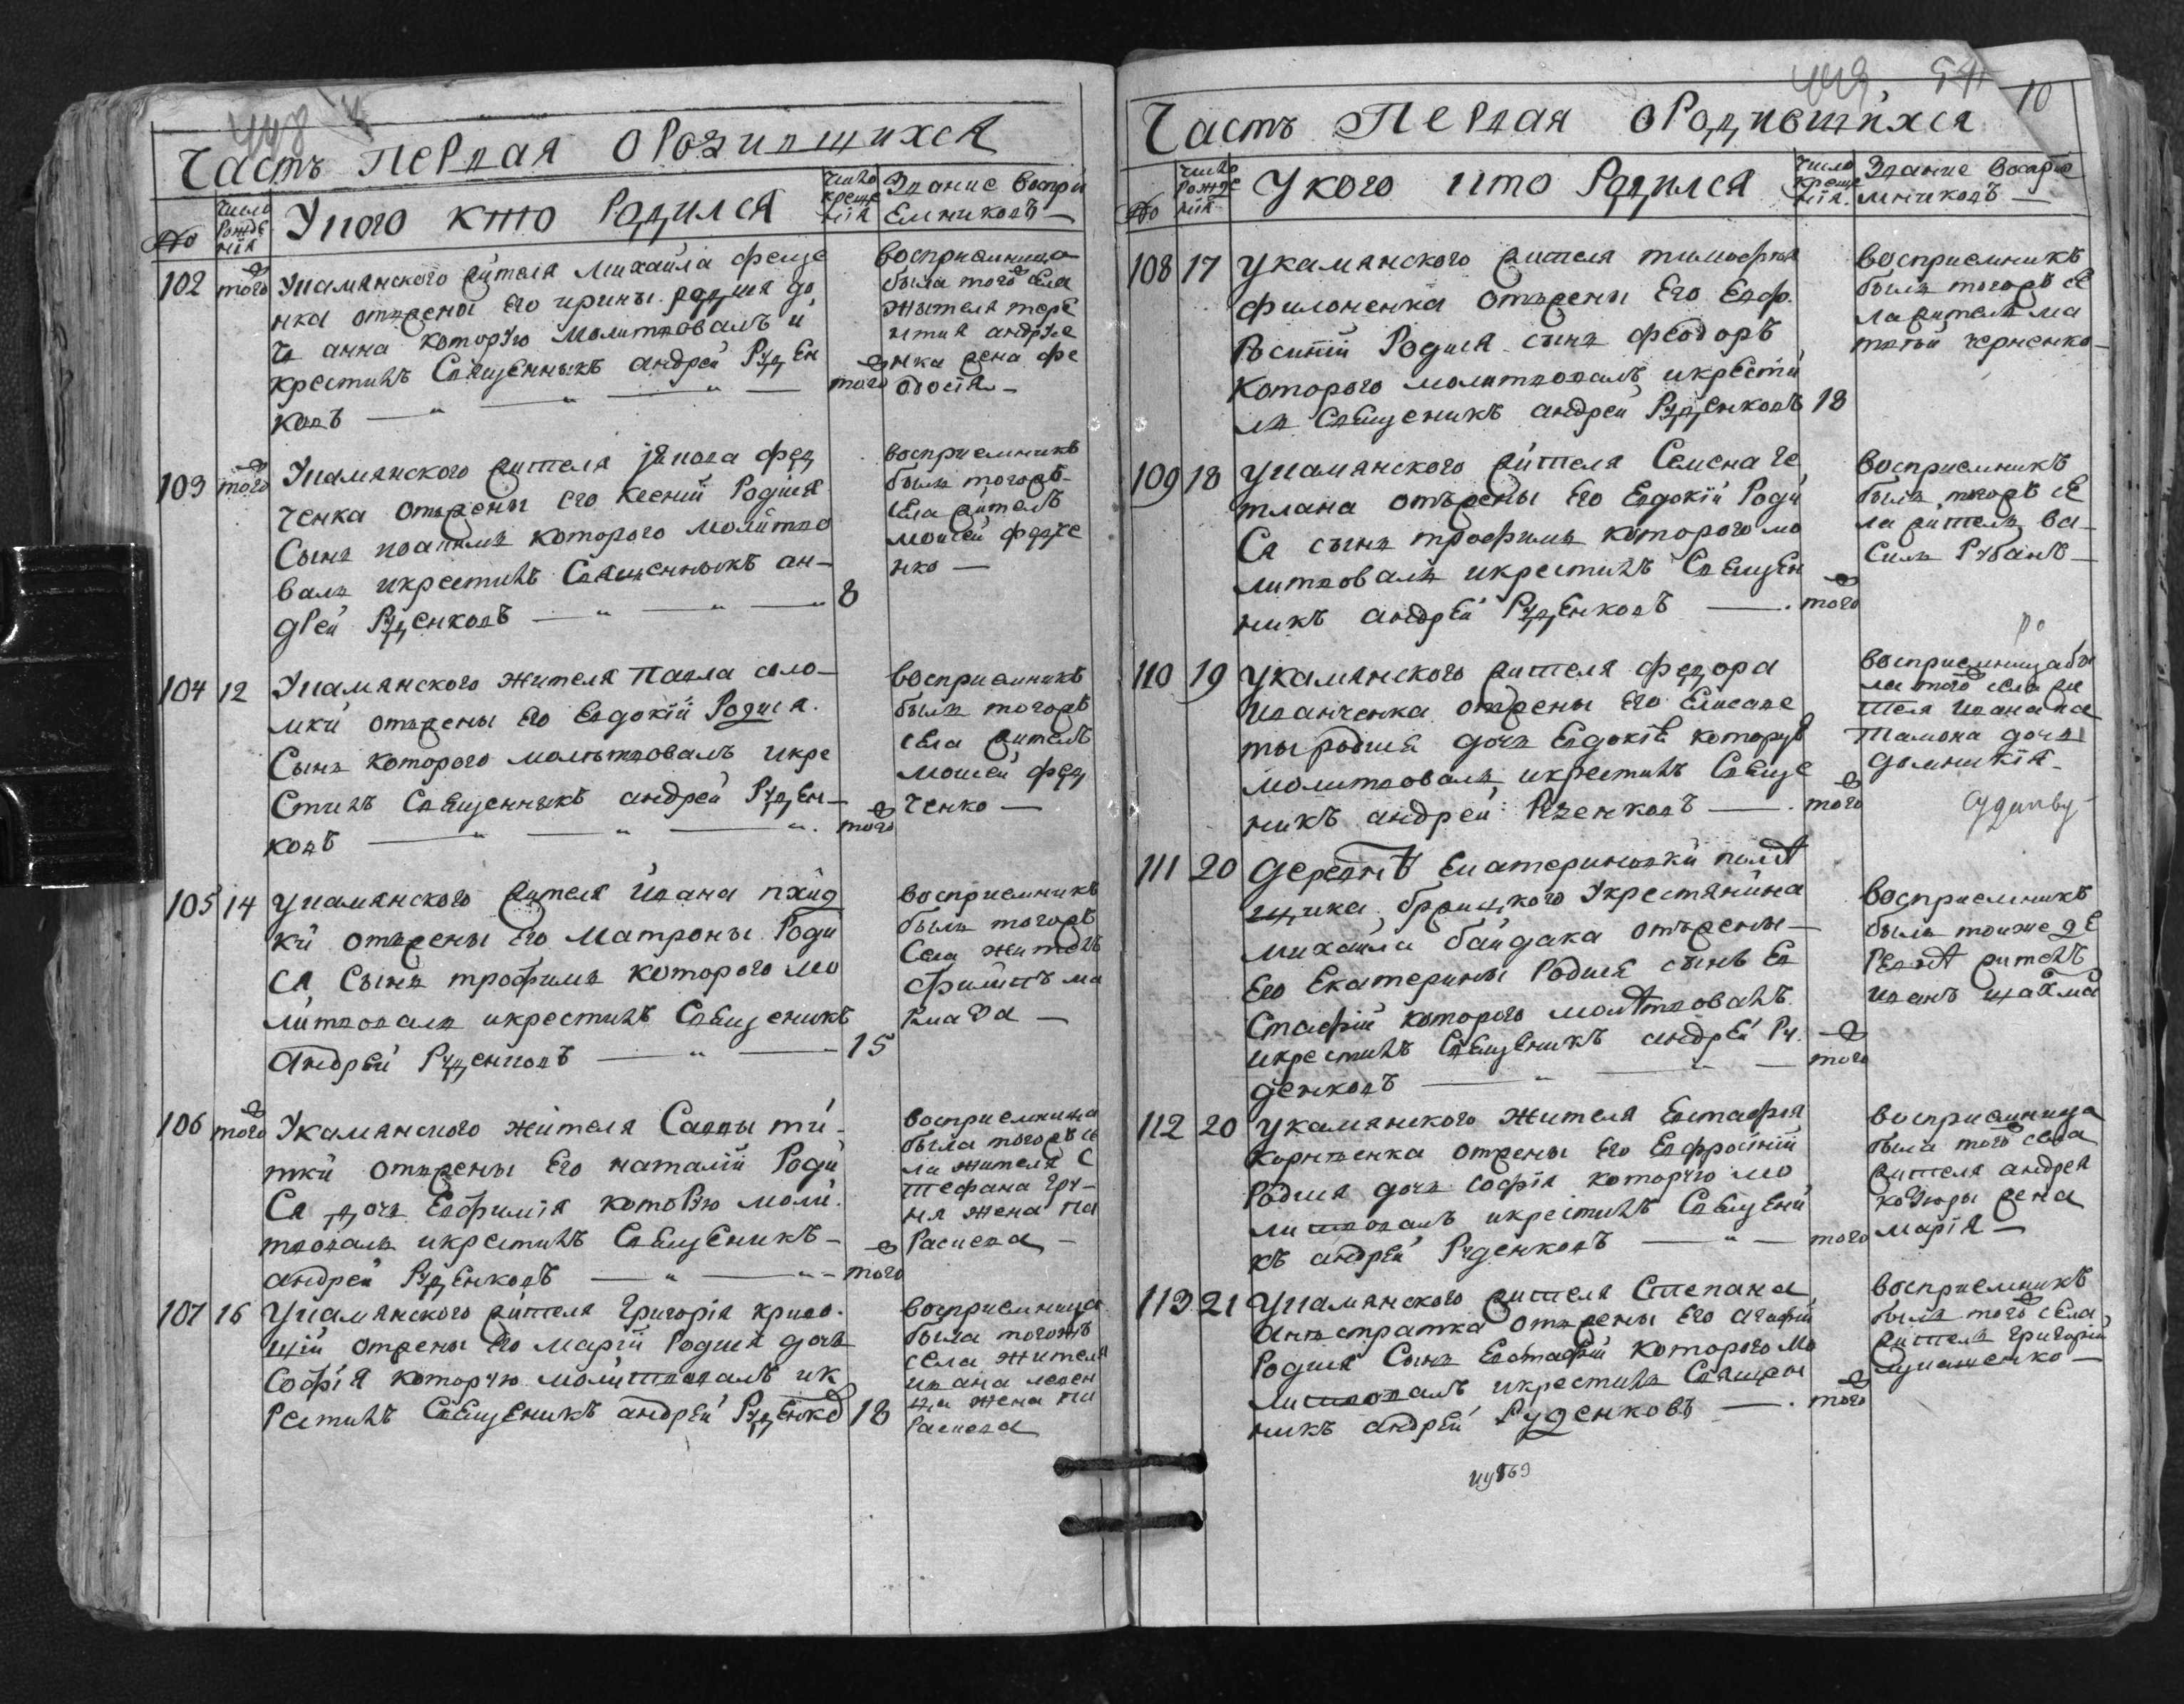 448
Часть Первая О Родившихся
№
Число рожденія
У кого кто Родился
Число крещенія
Званіе Воспріемниковъ —
102 того
Укамянского жителя Михайла феще
нка отжены Его ирины родися до
чь анна которую молитвовалъ и
крестилъ Священныкъ андрей Руден
ковъ — того
восприемница
была того села
жителя тере
нтия андрѣе
нка жена фе
одосія —
103 того
Укамянского жителя якова фед
ченка отжены его ксении Родися
Сынъ иоакимъ которого молитво
валъ икрестилъ Священныкъ ан-
дрей Руденковъ — 8
восприемникъ
былъ тогожъ
села житель
моисей федче
нко —
104 12
Укамянского жителя павла соло-
мки отжены Его Евдокїи Родися.
Сынъ которого молитвовалъ икре
Стилъ Священныкъ андрей Руден-
ковъ — того
восприемникъ
былъ тогожъ
села житель
моисей фед
ченко —
105 14
Укамянского жителя Ивана
ки отжены Его Матроны Роди
ся Сынъ трофимъ которого мо
литвовалъ икрестилъ Священикъ
Андрей Руденковъ — 15
восприемникъ
былъ тогожъ
Села житель
филиппъ ма
106 того
Укамянского жителя Саввы ти-
тки отжены Его наталїи Роди
Ся дочь Евфимія которую моли
твовалъ икрестилъ Священикъ —
андрей Руденковъ — того
восприемница
была тогожъ се
ла жителя С
тефана
жена па
раскева —
107 16
Укамянского жителя Григорія криво-
шїи отжены Его Марїи Родися дочь
Софія которую молитвовалъ ик
рестилъ Священикъ андрей Руденко 18
восприемница
была тогожъ
села жителя
ивана
жена па
раскева
449 541 10
Часть Первая О Родившихся
№
Число рожденія
У кого кто Родился
Число крещенія
Званіе Воспріемниковъ —
108 17
Укамянского жителя тимофея
филоненка отжены Его Евф
росинїи Родися сынъ феодоръ
которого молитвовалъ икрести
лъ Священикъ андрей Руденковъ 18
восприемникъ
былъ тогожъ се
ла житель ма
твѣй черненко —
109 18
Укамянского жителя Семена че
тлана отжены Его Евдокїи Роди
Ся сынъ трофимъ которого мо
литвовалъ икрестилъ Священ
никъ андрей Руденковъ — того
восприемникъ
былъ тогожъ се
ла житель ва-
силь Рубанъ —
110 19
Укамянского жителя федора
Иванченка отжены Его Елисаве
ты родися дочь Евдокїя которую
молитвовалъ икрестилъ Свяще
никъ андрей Руденковъ — того
восприемница бы
ла того села жи
теля Ивана па
тамона дочь
домникія —
111 20
Деревнѣ Екатериновки помѣ
щика крестянина
михайла байдака отжены —
Его Екатерины Родися сынъ Ев
Стафїй которого молитвовалъ
икрестилъ Священикъ андрей Ру
денковъ — того
восприемникъ
былъ тоиже де
ревнѣ житель
иванъ
112 20
Укамянского жителя Евстафія
Корнѣенка отжены Его Евфросинїи
Родися дочь софія которую мо
литвовалъ икрестилъ Священи
къ андрей Руденковъ — того
восприемница
была того села
жителя андрея
жена
марія —
113 21
Укамянского жителя Степана
отжены Его агафїи
Родися Сынъ Евстафїй которого мо
литвовалъ икрестилъ Священ
никъ андрей Руденковъ — того
восприемникъ
былъ того села
житель григорій